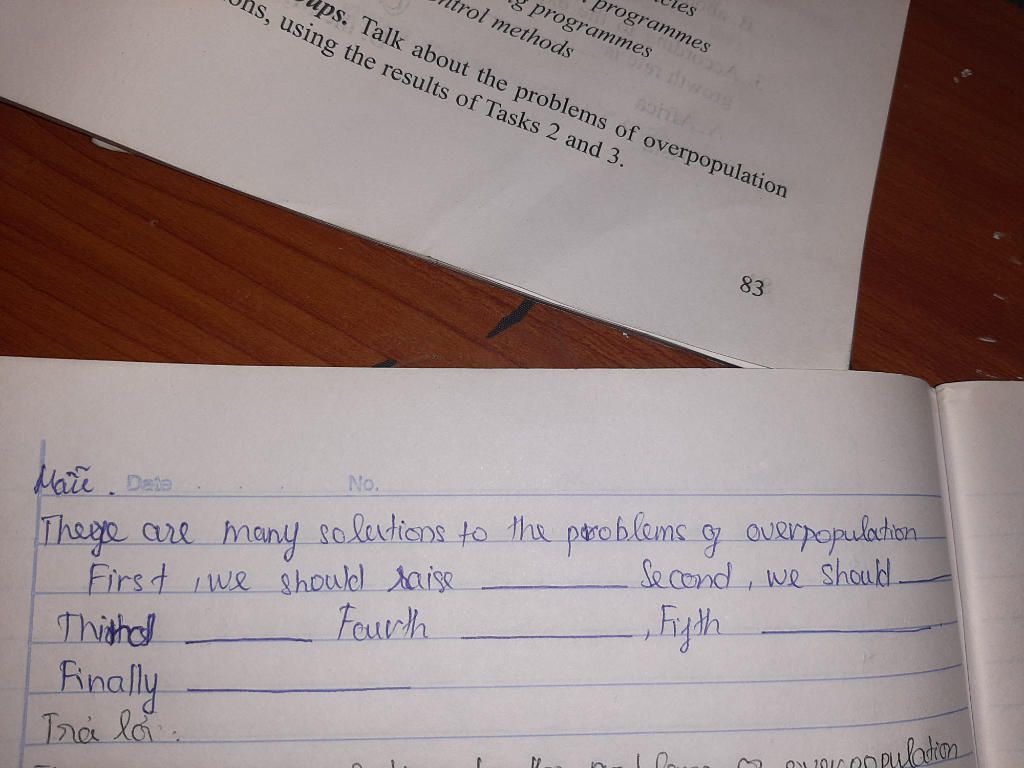 programmes
programmes
control methods
Talk about the problems of overpopulation
using the results of Tasks 2 and 3.
83
Date No.
There are many solutions to the problems of overpopulation
First, we should raise ____ Second, we should ____
Third ____ Fourth ____, Fifth ____
Finally ____
Trả lời:
overpopulation